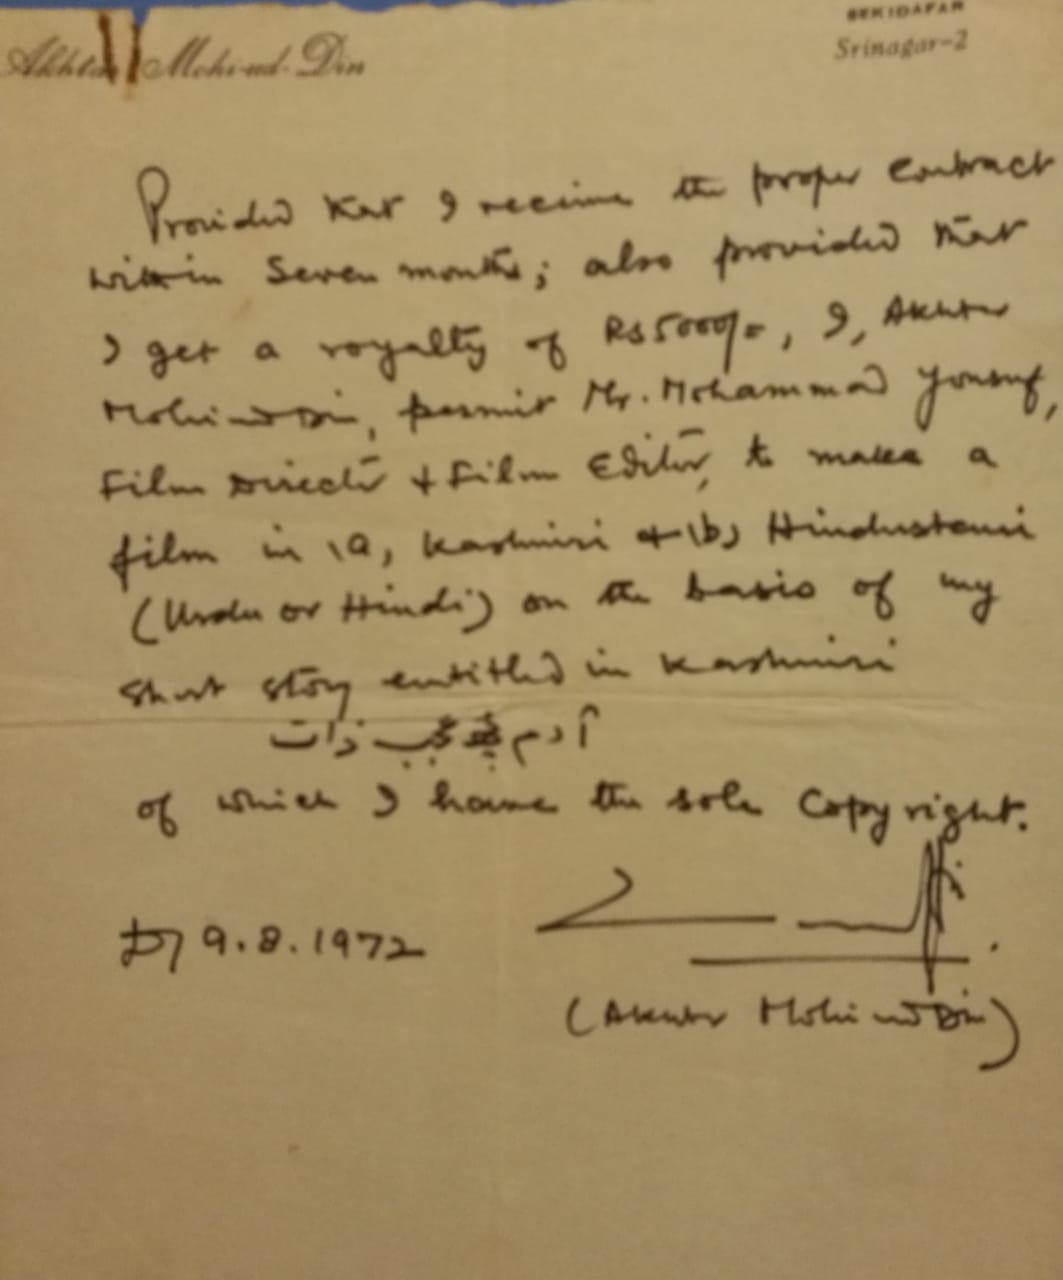 Akhtar Mohi-ud-Din
SEKIDAFAR
Srinagar-2
Provided that I receive the proper contract
within seven months; also provided that
I get a royalty of Rs 5000/=, I, Akhtar
Mohi ud Din, permit Mr. Mohammad Yousuf,
Film Director & Film Editor, to make a
film in (a) Kashmiri & (b) Hindustani
(Urdu or Hindi) on the basis of my
short story entitled in Kashmiri
آدم ذات
of which I have the sole Copyright.
Dt 9.8.1972
(Akhtar Mohi ud Din)